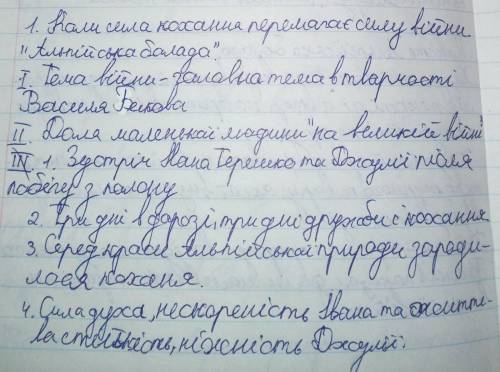 1. Коли сила кохання перемагає силу війни
"Альпійська балада"
I. Тема війни - головна тема в творчості
Василя Бикова
II. Доля маленької людини" на великій війні
III 1. Зустріч Івана Терешко та Джулії після
побегу з полону
2. Три дні в дорозі, три дні дружби і кохання
3. Серед краси Альпійської природи зароди-
лося коханя.
4. Сила духа, нескореність Івана та життє-
ва стійкість, ніжність Джулії.